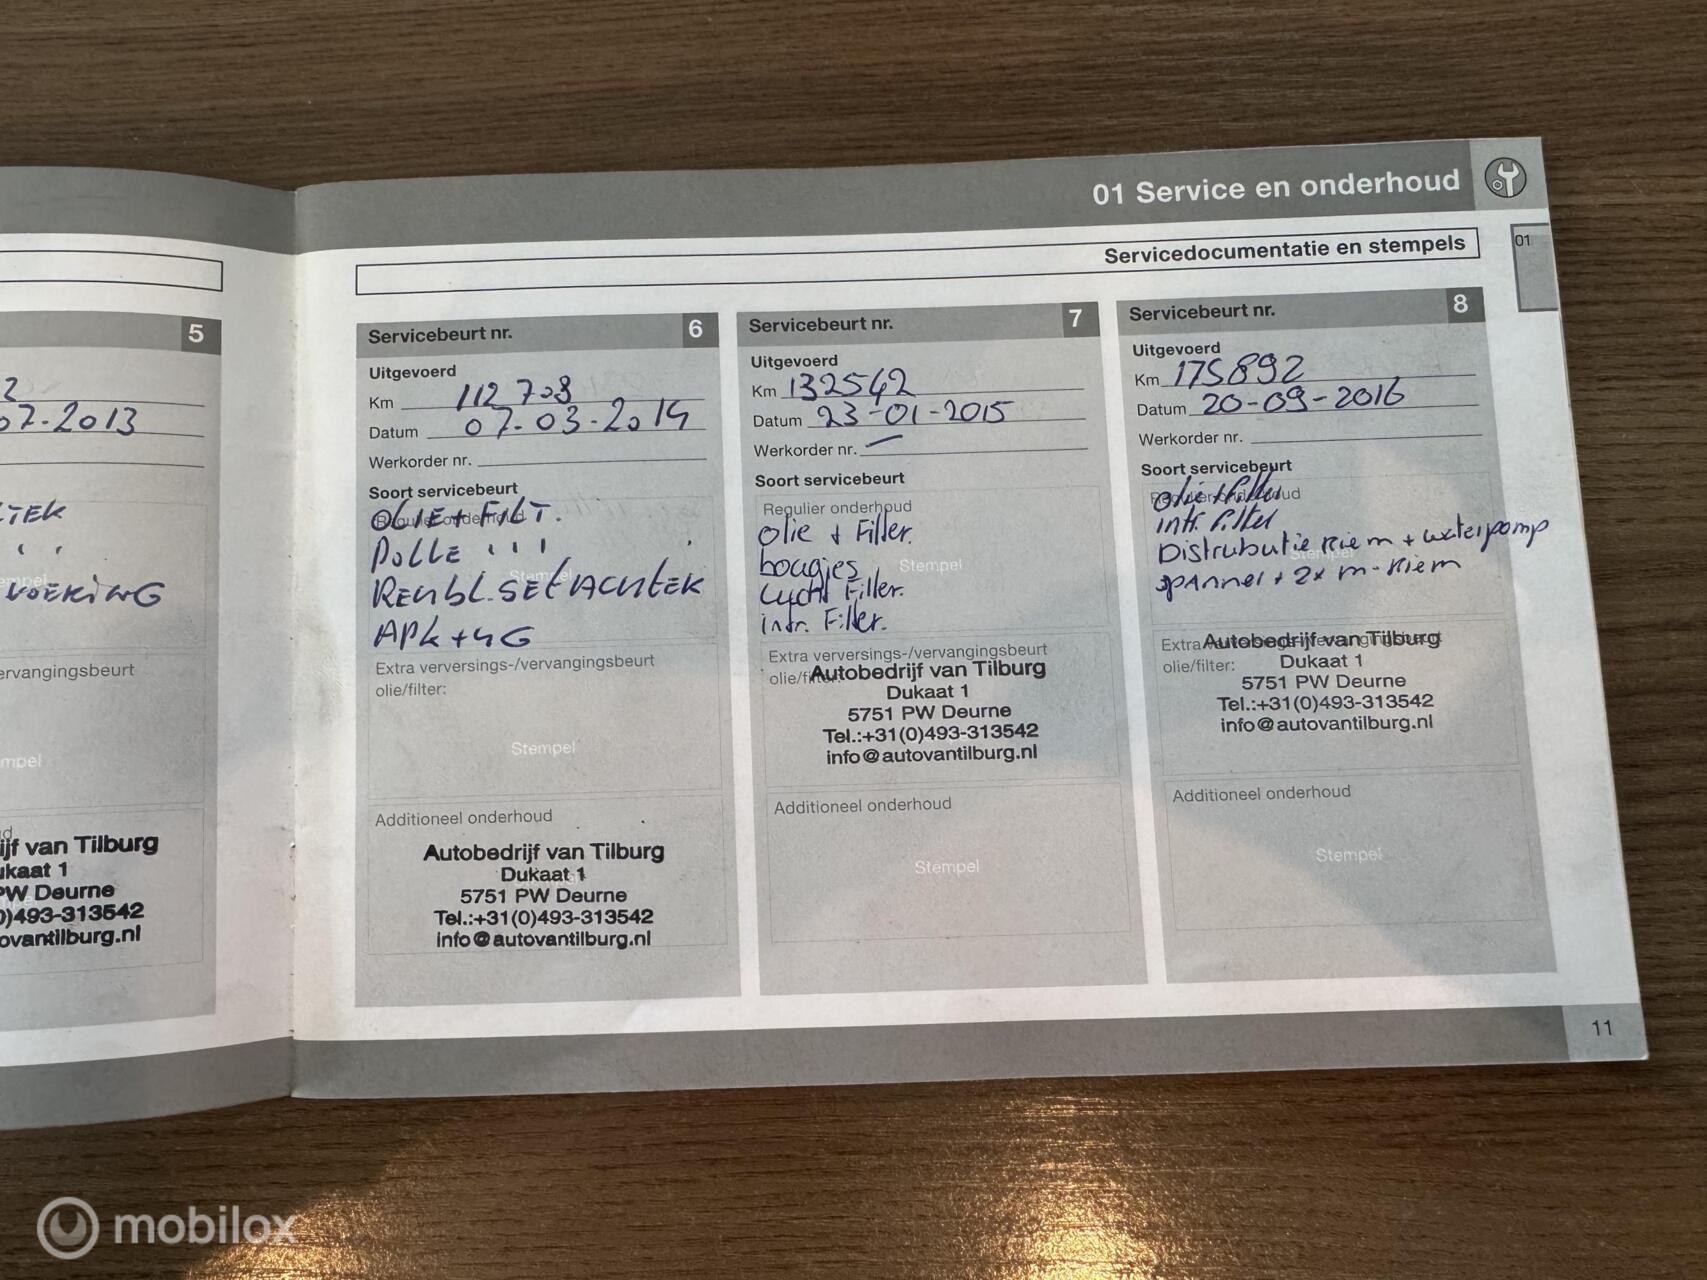 01 Service en onderhoud
01
Servicedocumentatie en stempels
5
2
07-2013
TEK
' '
VOERING
ervangingsbeurt
mpel
ijf van Tilburg
ukaat 1
PW Deurne
0)493-313542
ovantilburg.nl
Servicebeurt nr. 6
Uitgevoerd
Km 112708
Datum 07-03-2014
Werkorder nr.
Soort servicebeurt
Regulier onderhoud
OLIE + FILT.
POLLE ' ' '
REMBL. SET ACHTEK
Stempel
APK + 4G
Extra verversings-/vervangingsbeurt
olie/filter:
Stempel
Additioneel onderhoud
Autobedrijf van Tilburg
Dukaat 1
5751 PW Deurne
Tel.:+31(0)493-313542
info@autovantilburg.nl
Servicebeurt nr. 7
Uitgevoerd
Km 132542
Datum 23-01-2015
Werkorder nr. —
Soort servicebeurt
Regulier onderhoud
olie + Filter.
bougies
Stempel
Lucht Filter.
intr. Filter.
Extra verversings-/vervangingsbeurt
olie/filter:
Autobedrijf van Tilburg
Dukaat 1
5751 PW Deurne
Tel.:+31(0)493-313542
info@autovantilburg.nl
Additioneel onderhoud
Stempel
Servicebeurt nr. 8
Uitgevoerd
Km 175892
Datum 20-09-2016
Werkorder nr.
Soort servicebeurt
Regulier onderhoud
olie + filter
intr. filter
Distrubutie riem + waterpomp
Stempel
spanner + 2x m-riem
Extra verversings-/vervangingsbeurt
olie/filter:
Autobedrijf van Tilburg
Dukaat 1
5751 PW Deurne
Tel.:+31(0)493-313542
info@autovantilburg.nl
Additioneel onderhoud
Stempel
11
mobilox